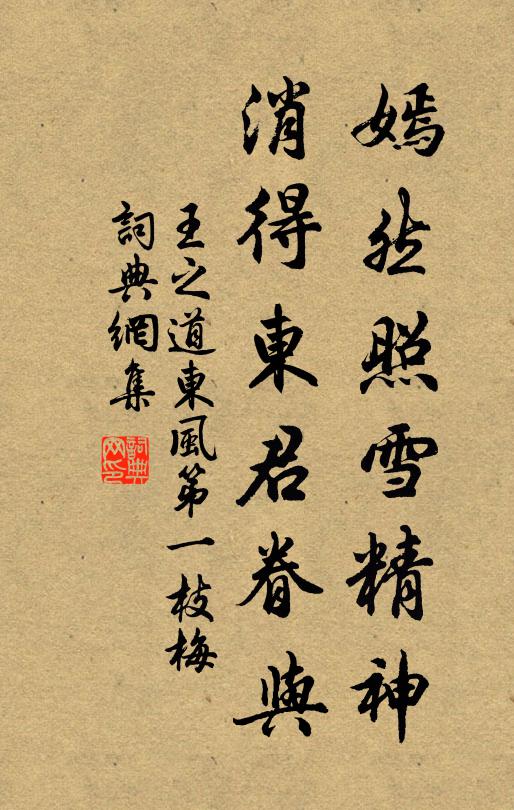 嫣然照雪精神
消得東君眷與
王之道東風第一枝梅
詞典網集
詞典網印